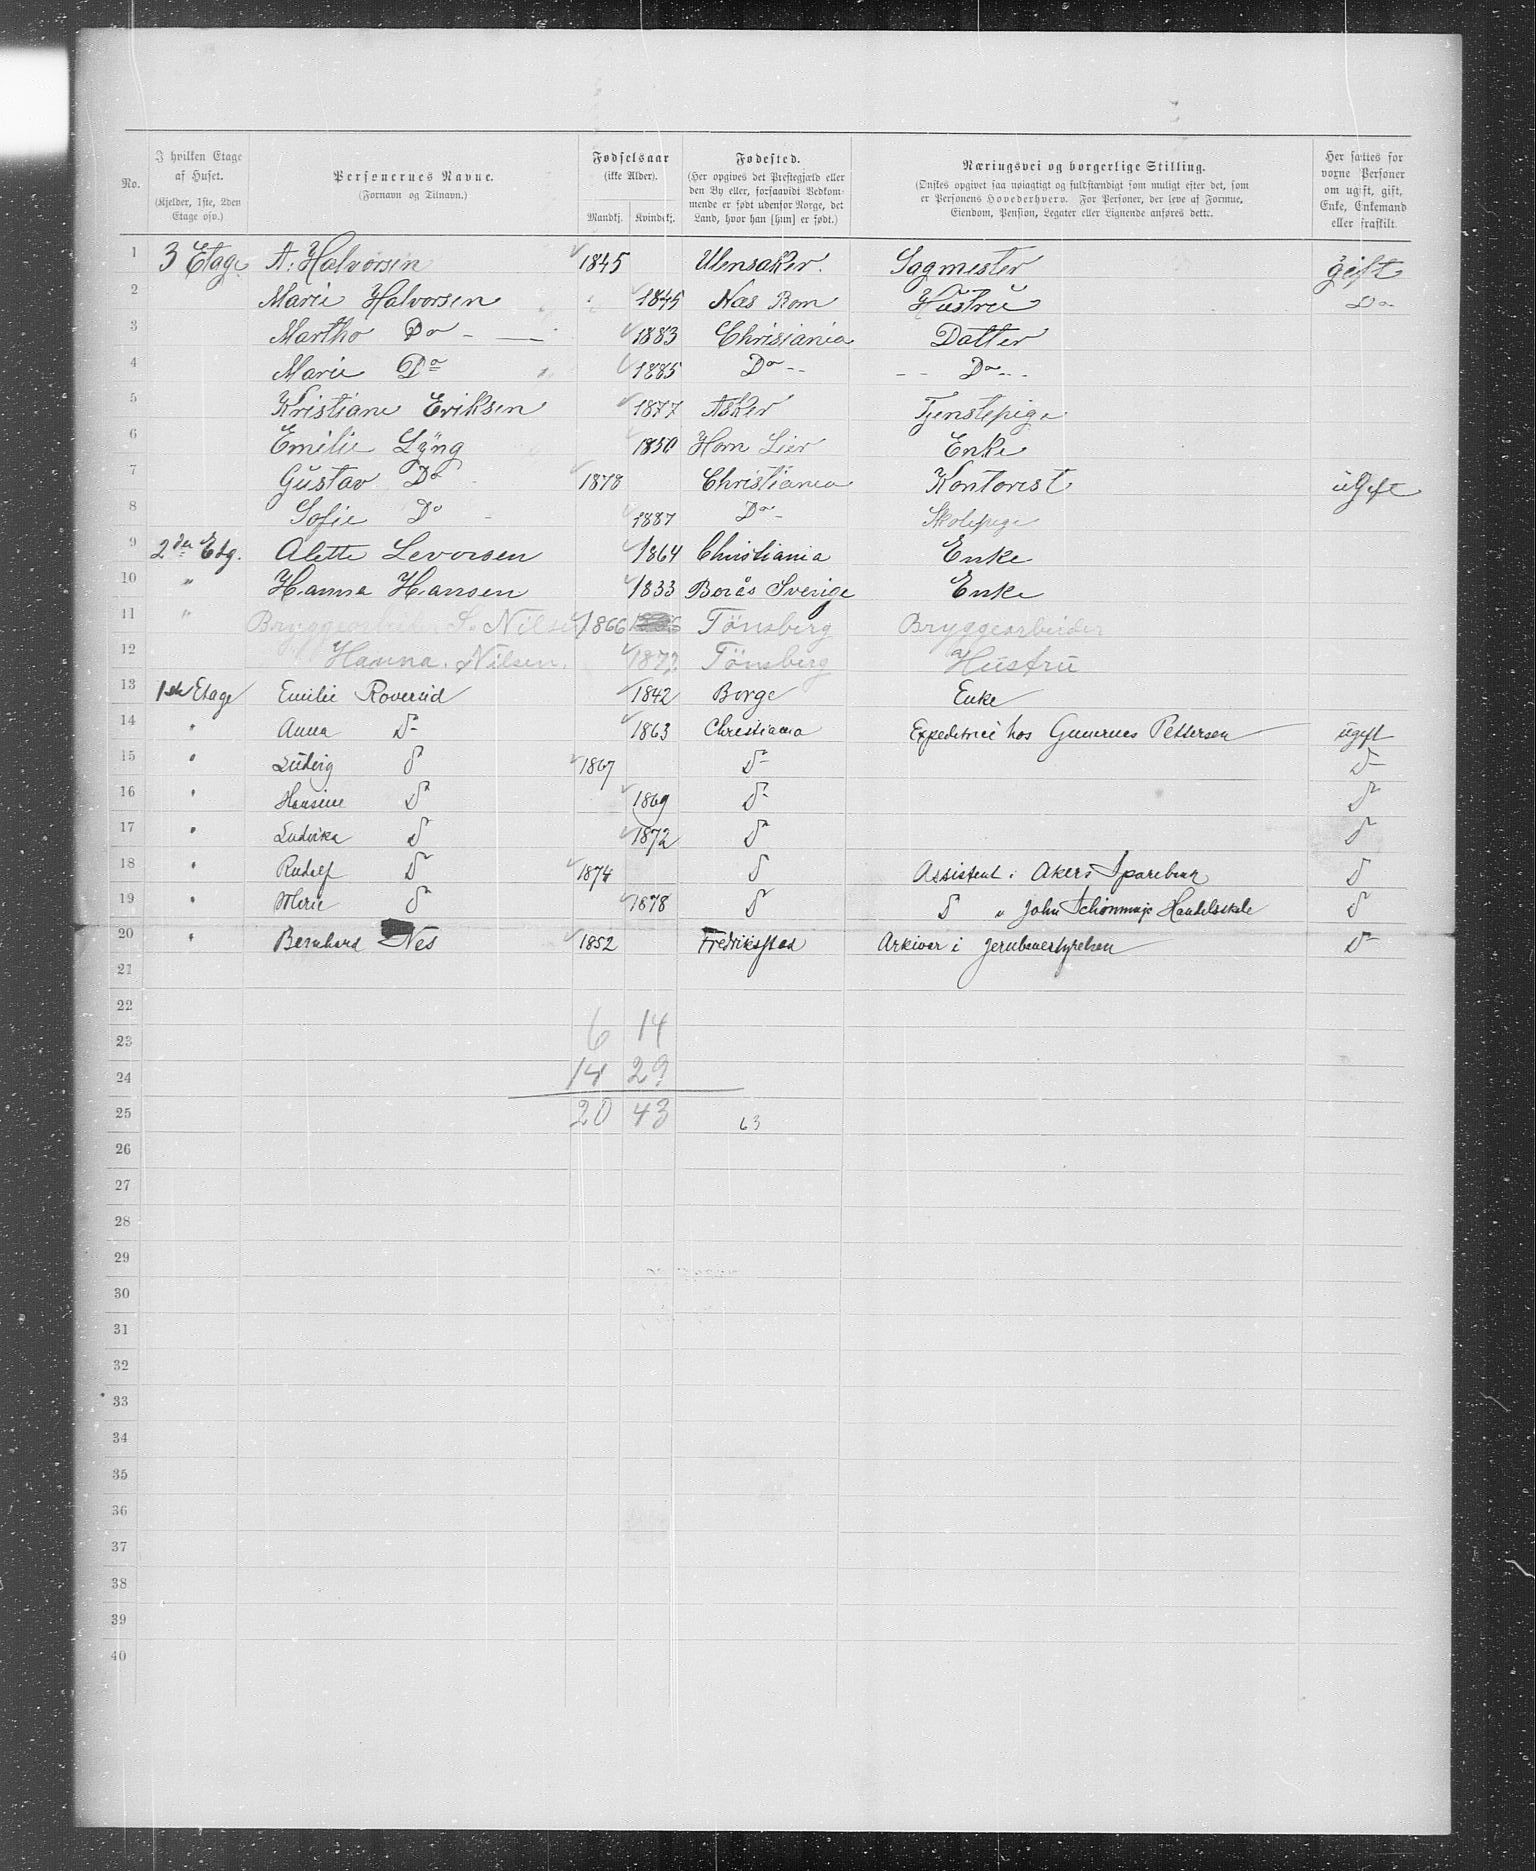 No.
I hvilken Etage af Huset. (Kjelder, 1ste, 2den Etage osv.)
Personernes Navne. (Fornavn og Tilnavn.)
Fødselsaar (ikke Alder). Mandkj. Kvindekj.
Fødested. (Her opgives det Prestegjæld eller den By eller, forsaavidt Vedkommende er født udenfor Norge, det Land, hvor han [hun] er født.)
Næringsvei og borgerlige Stilling. (Ønskes opgivet saa nøiagtigt og fuldstændigt som muligt efter det, som er Personens Hovederhverv. For Personer, der leve af Formue, Eiendom, Pension, Legater eller Lignende anføres dette.
Her sættes for voxne Personer om ugift, gift, Enke, Enkemand eller fraskilt.
1 3 Etage A: Halvorsen 1845 Ulensaker. Sagmester gift
2 Marie Halvorsen 1845 Næs Rom Hustru Do
3 Martha Do 1883 Christiania Datter
4 Marie Do 1885 Do -- Do --
5 Kristiane Eriksen 1877 Asker Tjenstepige
6 Emilie Lyng 1850 Lier Enke
7 Gustav Do 1878 Christiania Kontorist ugift
8 Sofie Do 1887 Do - Skolepige
9 2den Etg. Alette Levorsen 1864 Christiania Enke
10 " Hanna Hansen 1833 Borås Sverige Enke
11 " Bryggearbeider S. Nilsen 1866 Tönsberg Bryggearbeider
12 Hanna. Nilsen. 1872 Tönsberg Hustru
13 1ste Etage Emilie Roverud 1842 Borge Enke
14 " Anna Do 1863 Christiania Expeditrice hos Gunerius Pettersen ugift
15 " Ludvig Do 1867 Do Do
16 " Hansine Do 1869 Do Do
17 " Ludvika Do 1872 Do Do
18 " Rudolf Do 1874 Do Assistent i Akers Sparebank Do
19 " Marie Do 1878 Do Do " John Schønnings Handelsskole Do
20 " Bernhard Nes 1852 Fredriksstad Arkivar i Jernbanestyrelsen Do
21
22
23 6 14
24 14 29
25 20 43 63
26
27
28
29
30
31
32
33
34
35
36
37
38
39
40